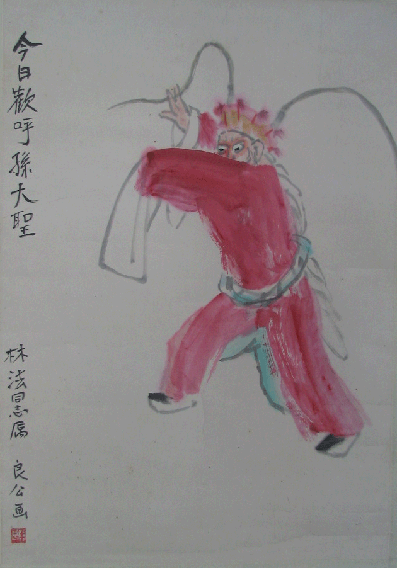 今日歡呼孫大聖
林法同志属
良公画